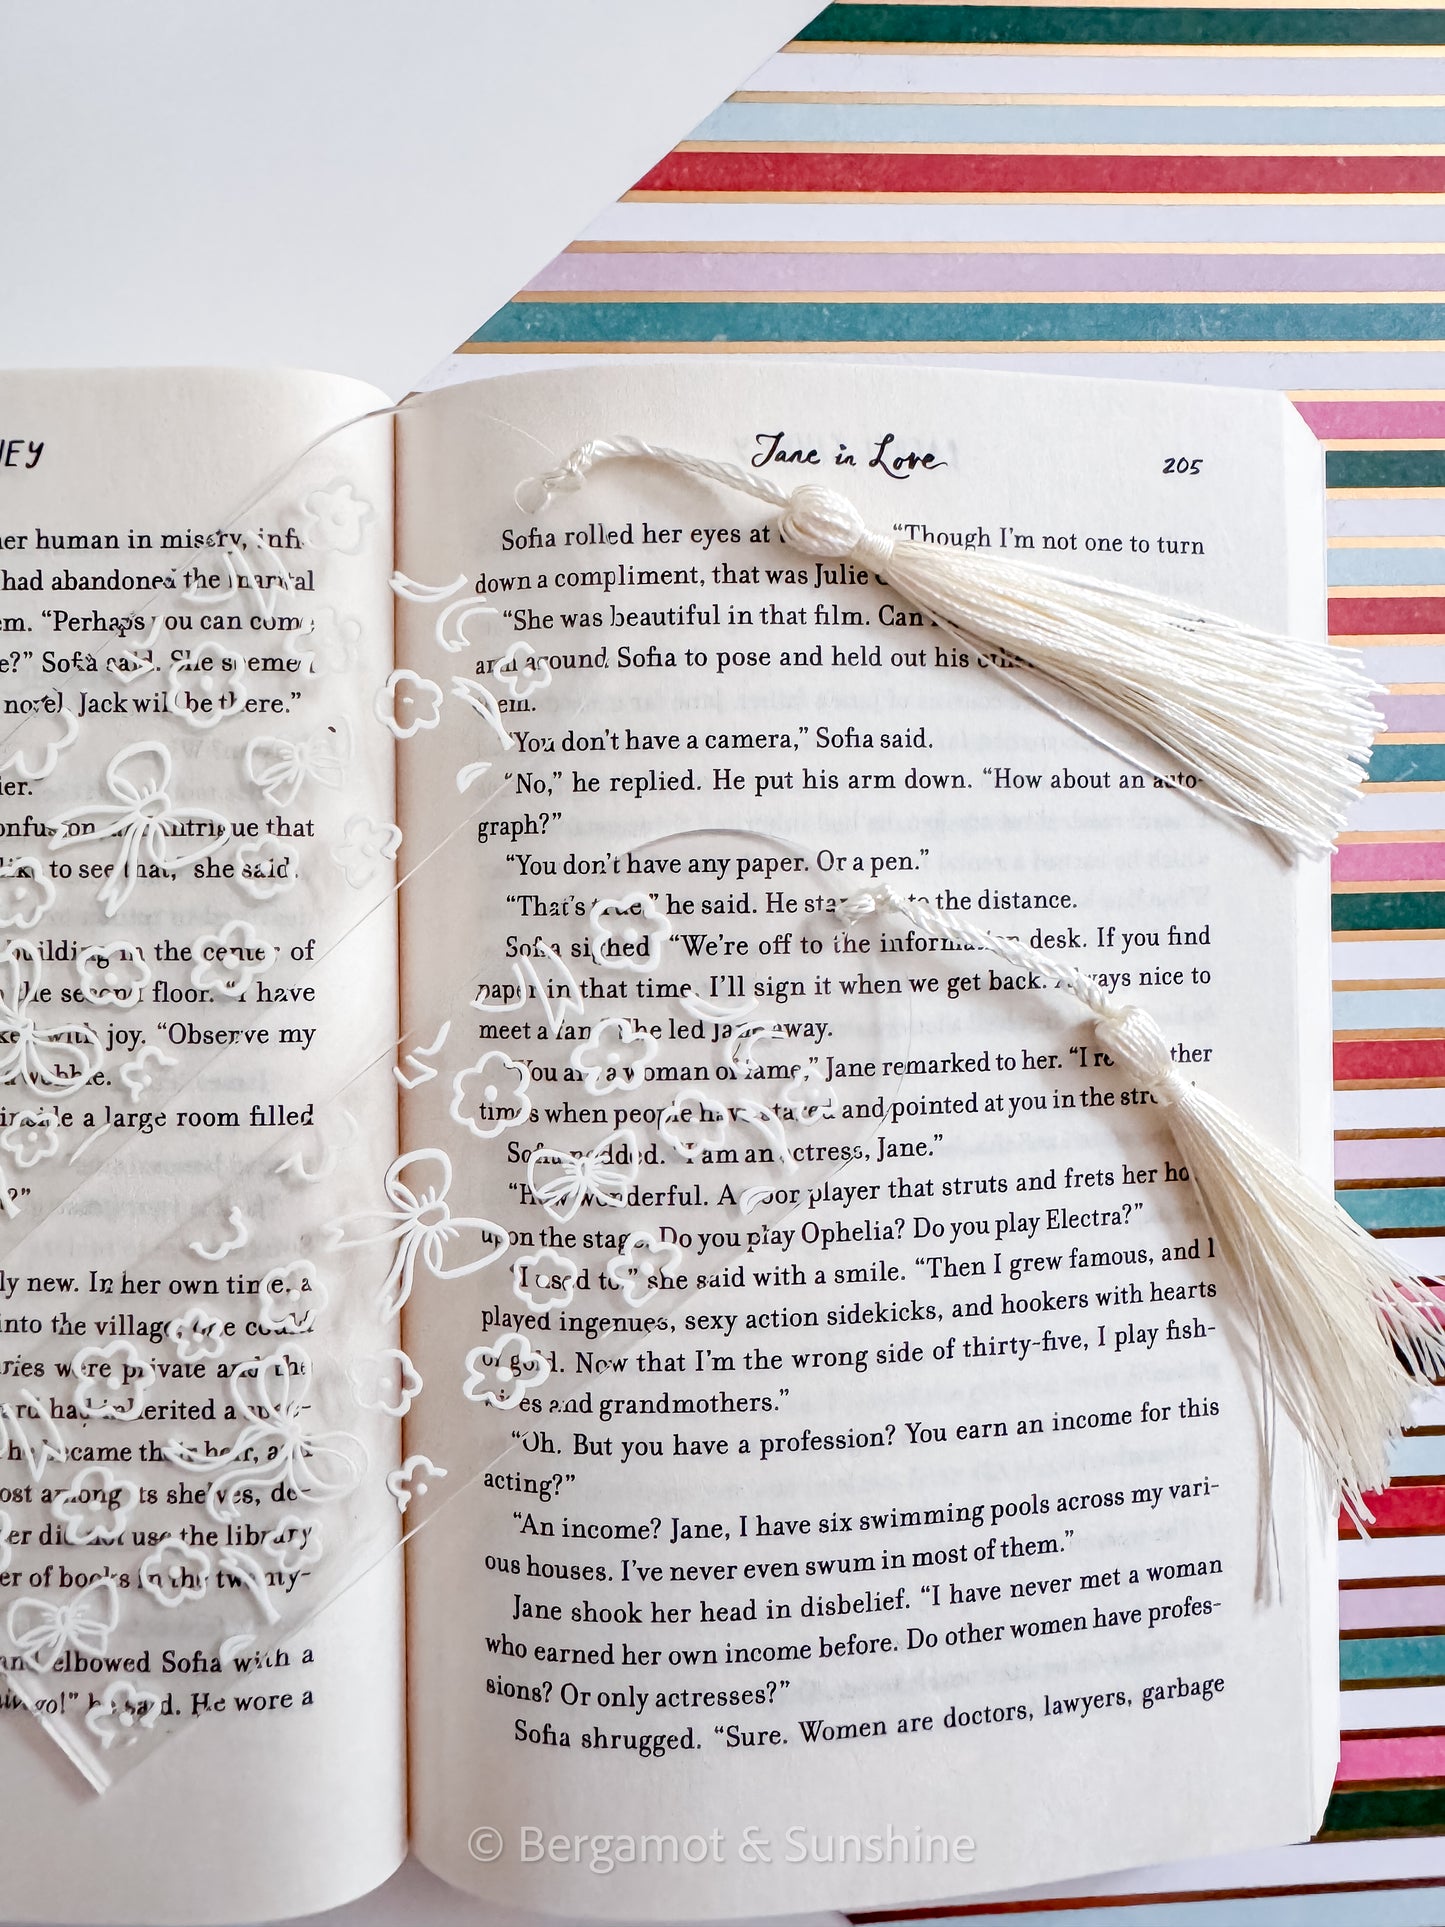 NEY
her human in misery, infi-
had abandoned the marital
em. “Perhaps you can come
e?” Sofia said. She seemed
novel. Jack will be there.”
ier.”
onfusion and intrigue that
like to see that,” she said.
building in the center of
the second floor. “I have
ked with joy. “Observe my
a wobble.
inside a large room filled
?”
ly new. In her own time, a
into the village, one could
ries were private and the
ard had inherited a spec-
he became their heir, and
ost among its shelves, de-
er did not use the library
er of books in the twenty-
and elbowed Sofia with a
he said. He wore a
Jane in Love
205
Sofia rolled her eyes at “Though I’m not one to turn
down a compliment, that was Julie
“She was beautiful in that film. Can
arm around Sofia to pose and held out his other
them.
“You don’t have a camera,” Sofia said.
“No,” he replied. He put his arm down. “How about an auto-
graph?”
“You don’t have any paper. Or a pen.”
“That’s true,” he said. He stared into the distance.
Sofia sighed. “We’re off to the information desk. If you find
paper in that time, I’ll sign it when we get back. Always nice to
meet a fan.” She led Jane away.
“You are a woman of fame,” Jane remarked to her. “I re ther
times when people have stared and pointed at you in the street.”
Sofia nodded. “I am an actress, Jane.”
“How wonderful. A poor player that struts and frets her hour
upon the stage. Do you play Ophelia? Do you play Electra?”
“I used to,” she said with a smile. “Then I grew famous, and I
played ingenues, sexy action sidekicks, and hookers with hearts
of gold. Now that I’m the wrong side of thirty-five, I play fish-
wives and grandmothers.”
“Oh. But you have a profession? You earn an income for this
acting?”
“An income? Jane, I have six swimming pools across my vari-
ous houses. I’ve never even swum in most of them.”
Jane shook her head in disbelief. “I have never met a woman
who earned her own income before. Do other women have profes-
sions? Or only actresses?”
Sofia shrugged. “Sure. Women are doctors, lawyers, garbage
© Bergamot & Sunshine